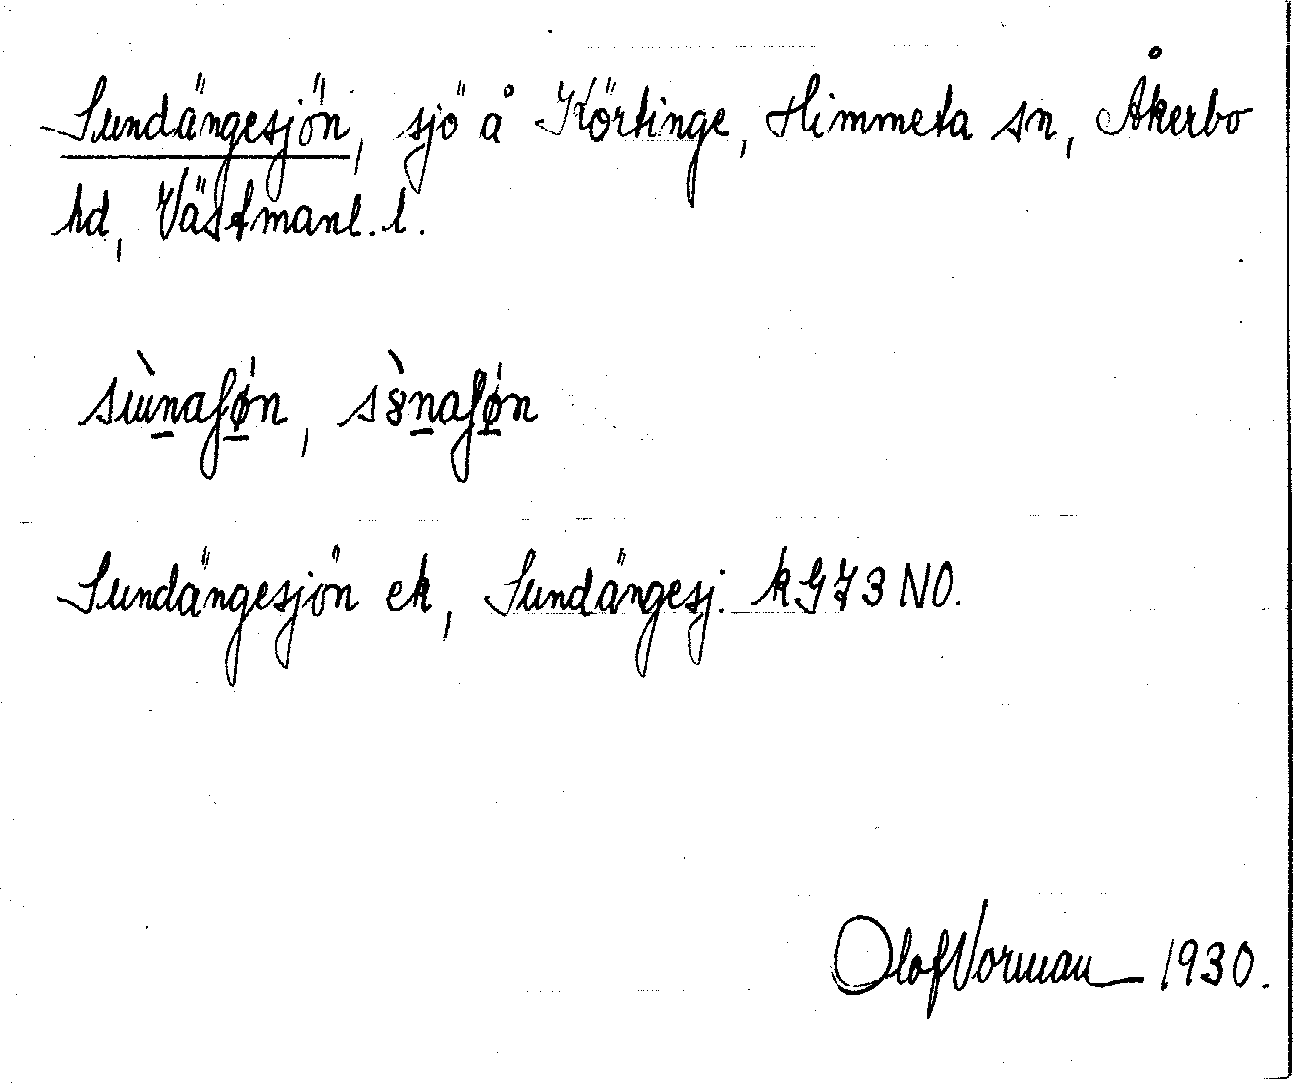 Sundängesjön, sjö å Körtinge, Himmeta sn, Åkerbo
hd, Västmanl. l.
Sundängesjön ek, Sundängesj. k G73 NO.
Olof Vorman 1930.